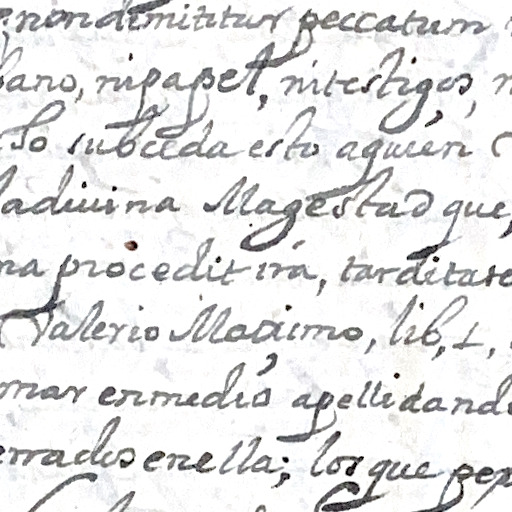 non dimititur peccatum
bano, ni papel, ni testigos,
so subceda esto aquien
la divina Magestad que,
na procedit irá, tardítate
Valerio Maximo, lib, 1,
mar enmedio apellidando
errados enella; los que per